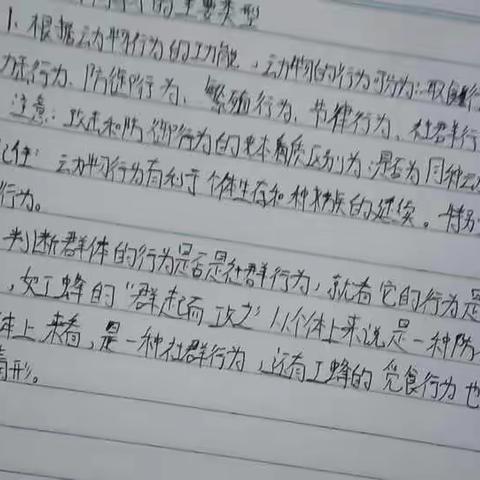 的主要类型
1、根据动物行为的功能,动物的行为可分为:取食行
行为、防御行为、繁殖行为、节律行为、社群行
注意:攻击和防御行为的本质区别为:是否为同种动
记住:动物行为有利于个体生存和种族的延续。特别
行为。
判断群体的行为是否是社群行为,就看它的行为是
,如工蜂的“群起而攻之”从个体上来说是一种防
体上来看,是一种社群行为,还有工蜂的觅食行为也
情形。